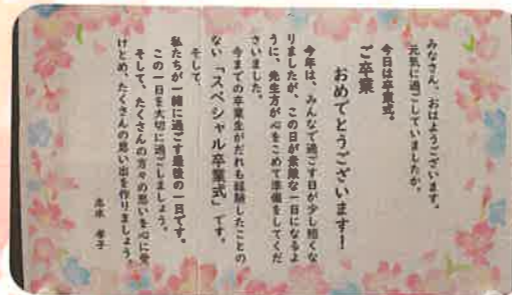 みなさん、おはようございます。
元気に過ごしていましたか。
今日は卒業式。
ご卒業
おめでとうございます!
今年は、みんなで過ごす日が少し短くな
りましたが、この日が素敵な一日になるよ
うに、先生方が心をこめて準備をしてくだ
さいました。
今までの卒業生がだれも経験したことの
ない「スペシャル卒業式」です。
そして、
私たちが一緒に過ごす最後の一日です。
この一日を大切に過ごしましょう。
そして、たくさんの方々の思いを心に受
けとめ、たくさんの思い出を作りましょう。